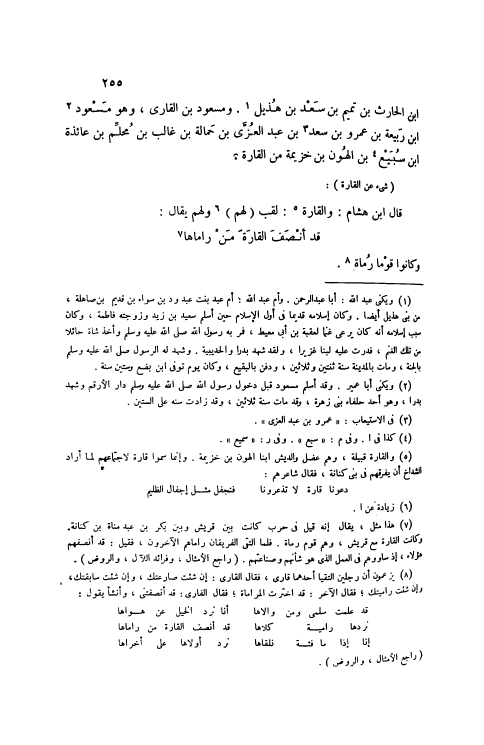 ٢٥٥
ابن الحارث بن تميم بن سَعْد بن هُذيل ١ . ومسعود بن القارى ، وهو مَسْعود ٢
ابن رَبيعة بن عمرو بن سعد٣ بن عبد العُزَّى بن حَمالة بن غالب بن مُحلِّم بن عائذة
ابن سُبَيْع ٤ بن الهَون بن خزيمة من القارة ؟
( شىء عن القارة ) :
قال ابن هشام : والقارة ٥ : لقب ( لهم ) ٦ ولهم يقال :
قد أنْصَفَ القارَةَ مَنْ راماها٧
وكانوا قوْما رُماة ٨ .
(١) ويكنى عبد الله : أبا عبدالرحمن . وأم عبد الله ؛ أم عبد بنت عبد ود بن سواء بن قديم بن صاهلة ،
من بنى هذيل أيضا . وكان إسلامه قديما فى أول الإسلام حين أسلم سعيد بن زيد وزوجته فاطمة ، وكان
سبب إسلامه أنه كان يرعى غنما لعقبة بن أبى معيط ، فمر به رسول الله صلى الله عليه وسلم وأخذ شاة حائلا
من تلك الغنم ، فدرت عليه لبنا غزيرا ، ولقد شهد بدرا والحديبية . وشهد له الرسول صلى الله عليه وسلم
بالجنة ، ومات بالمدينة سنة ثنتين وثلاثين ، ودفن بالبقيع ، وكان يوم توفى ابن بضع وستين سنة .
(٢) ويكنى أبا عمير . وقد أسلم مسعود قبل دخول رسول الله صلى الله عليه وسلم دار الأرقم وشهد
بدرا ، وهو أحد حلفاء بنى زهرة ، وقد مات سنة ثلاثين ، وقد زادت سنه على الستين .
(٣) فى الاستيعاب : « عمرو بن عبد العزى » .
(٤) كذا فى ا . وفى م : « سبع » . وفى ر : « سميع » .
(٥) والقارة قبيلة ، وهم عضل والديش ابنا الهون بن خزيمة . وإنما سموا قارة لاجتماعهم لما أراد
الشداخ أن يفرقهم فى بنى كنانة ، فقال شاعرهم :
دعونا قارة لا تذعرونا فنجفل مثل إجفال الظليم
(٦) زيادة عن ا .
(٧) هذا مثل ، يقال إنه قيل فى حرب كانت بين قريش وبين بكر بن عبد مناة بن كنانة.
وكانت القارة مع قريش ، وهم قوم رماة . فلما التقى الفريقان راماهم الآخرون ، فقيل : قد أنصفهم
هؤلاء ، إذ ساووهم فى العمل الذى هو شأنهم وصناعتهم . ( راجع الأمثال ، وفرائد اللآل ، والروض ) .
(٨) يزعمون أن رجلين التقيا أحدهما قارى ، فقال القارى : إن شئت صارعتك ، وإن شئت سابقتك ،
وإن شئت راميتك ؛ فقال الآخر : قد اخترت المراماة ؛ فقال القارى : قد أنصفتنى ، وأنشأ يقول :
قد علمت سلمى ومن والاها أنا نرد الخيل عن هواها
نردها رامية كلاها قد أنصف القارة من راماها
إنا إذا ما فئة نلقاها نرد أولاها على أخراها
( راجع الأمثال ، والروض ) .